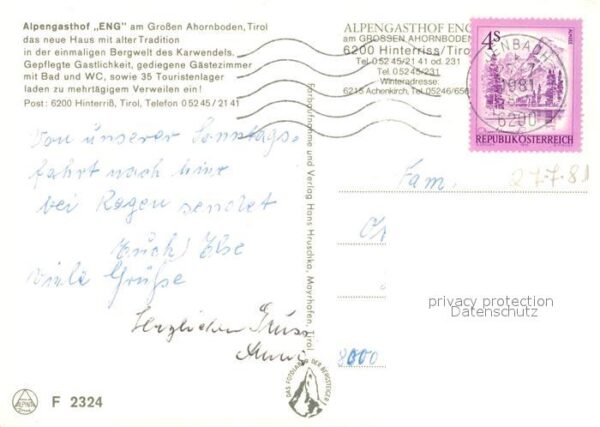 Alpengasthof „ENG" am Großen Ahornboden, Tirol
das neue Haus mit alter Tradition
in der einmaligen Bergwelt des Karwendels.
Gepflegte Gastlichkeit, gediegene Gästezimmer
mit Bad und WC, sowie 35 Touristenlager
laden zu mehrtägigem Verweilen ein!
Post: 6200 Hinterriß, Tirol, Telefon 0 52 45 / 21 41
ALPENGASTHOF ENG
am GROSSEN AHORNBODEN
6200 Hinterriss/Tirol
Tel. 0 52 45/21 41 od. 231
Tel. 05245/231
Winteradresse:
6215 Achenkirch, Tel. 05246/656
4S
REPUBLIK ÖSTERREICH
ENBACH
1981
6200
Von unserer Sonntags-
fahrt nach hier
bei Regen sendet
Euch Else
viele Grüße
Herzlichen Gruss
Anni
Farbaufnahme und Verlag Hans Hruschka, Mayrhofen, Tirol
Fam.
27.7.81
8000
privacy protection
Datenschutz
DAS FOTOLABOR DER BERGSTEIGER
F 2324